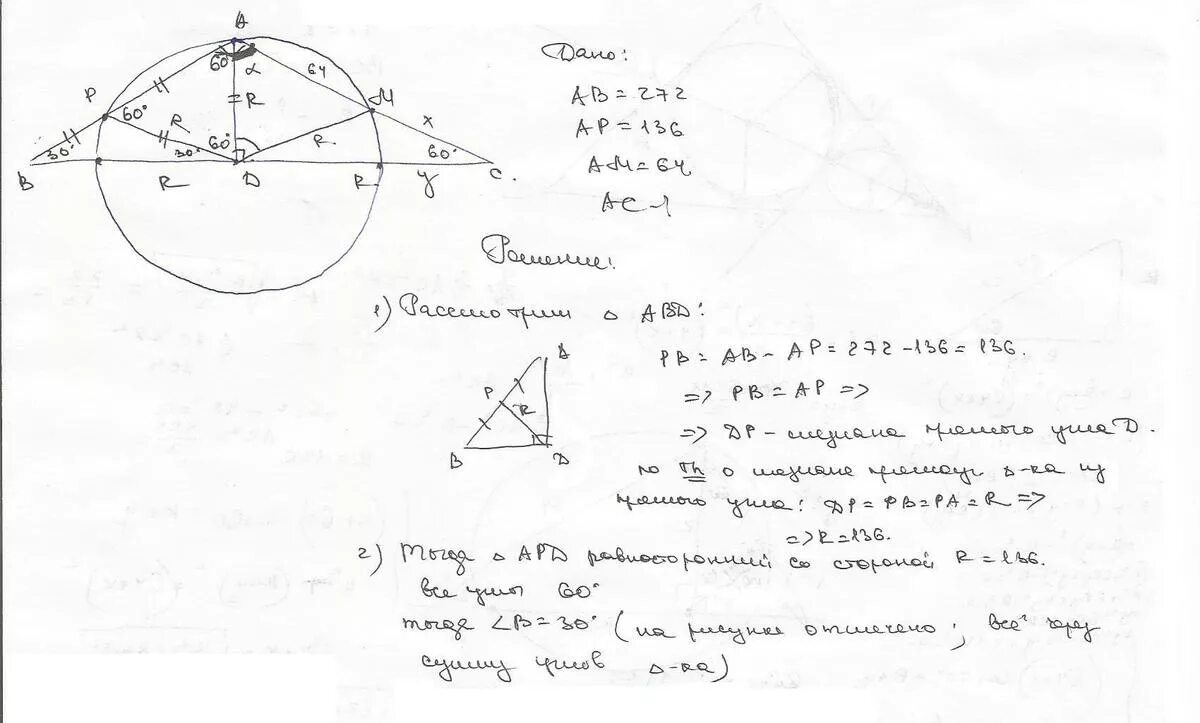 A
60° α 64
P 60° R R M
30° 30° 60° R x 60°
B R D R y C.
Дано:
AB = 272
AP = 136
AM = 64
AC - ?
Решение:
1) Рассмотрим △ ABD:
A
P R
B D
PB = AB - AP = 272 - 136 = 136.
=> PB = AP =>
=> DP - медиана прямого угла D.
по Th о медиане прямоуг △-ка из
прямого угла: DP = PB = PA = R =>
=> R = 136.
2) Тогда △ APD равносторонний со стороной R = 136.
все углы 60°
тогда ∠B = 30° (на рисунке отмечено; всё через
сумму углов △-ка)